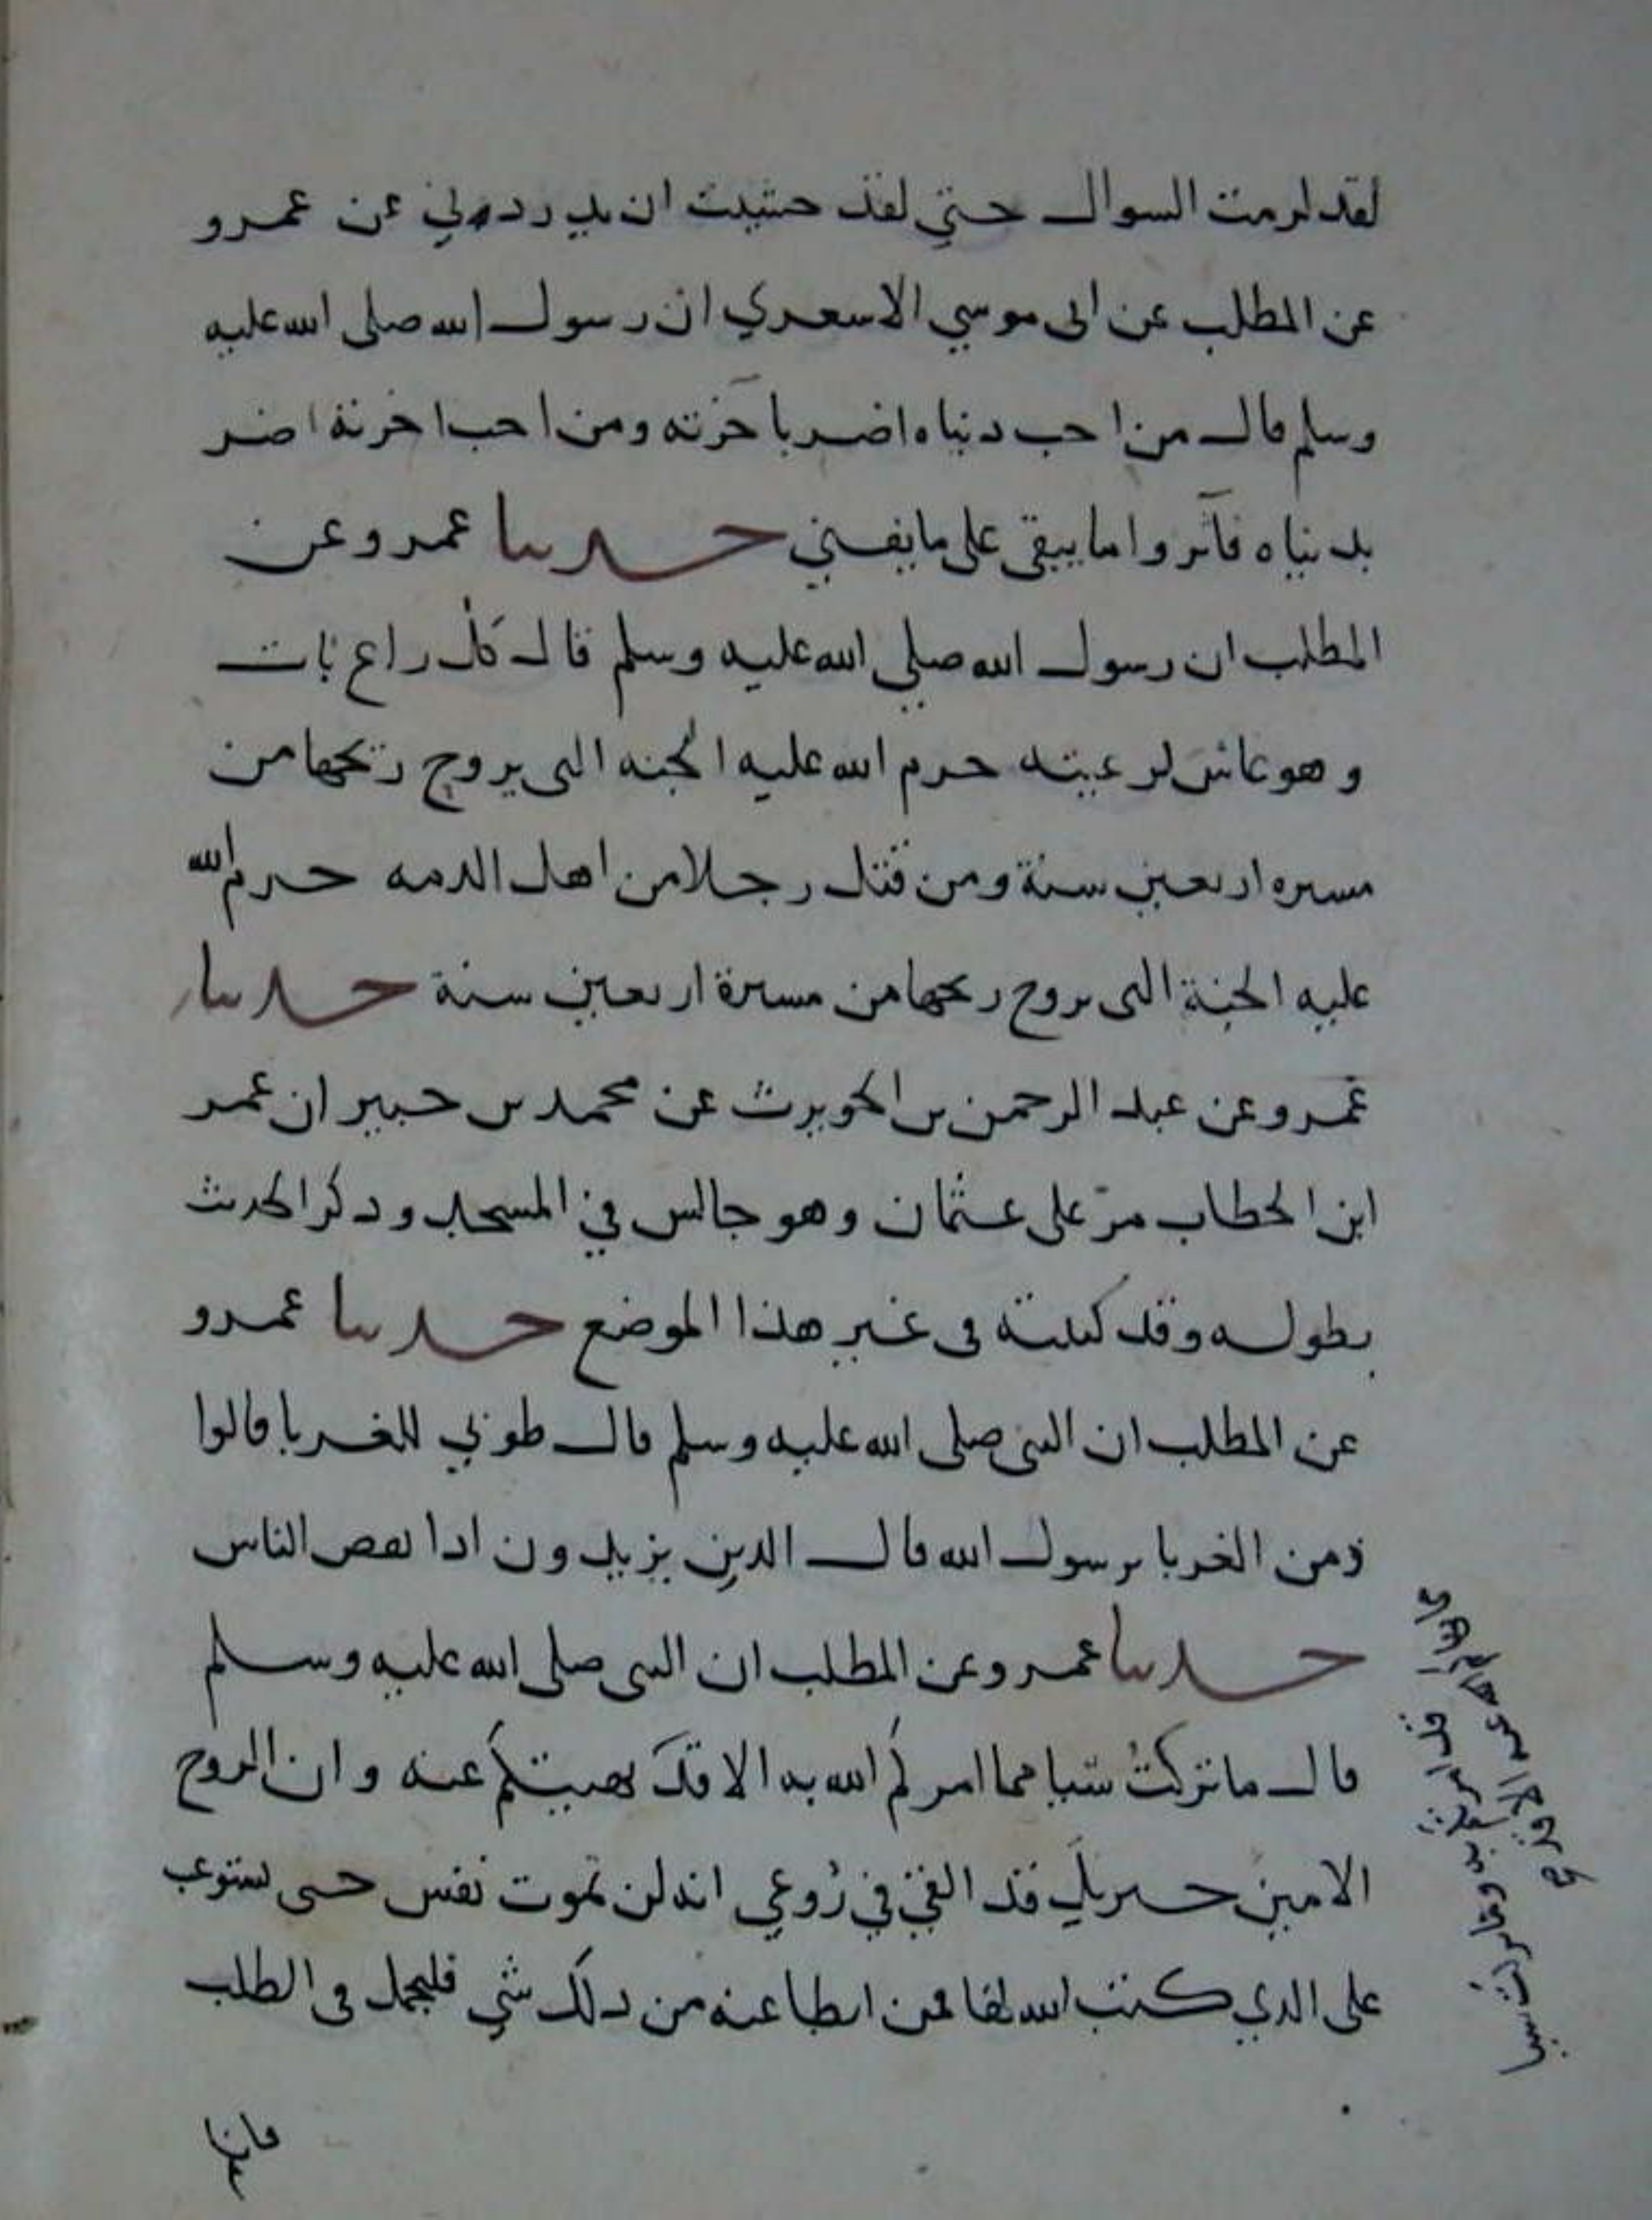 لقد لزمت السوال حتي لقد خشيت ان يدردني عن عمرو
عن المطلب عن ابى موسي الاسعري ان رسول الله صلى الله عليه
وسلم قال من احب دنياه اضر باخرته ومن احب اخرتة اضر
بدنياه فآثروا ما يبقى على ما يفني حدثنا عمرو عن
المطلب ان رسول الله صلي الله عليه وسلم قال كل راع بات
وهو غاش لرعيته حرم الله عليه الجنه التى يروح ريحها من
مسيره اربعين سنة ومن قتل رجلا من اهل الدمه حرم الله
عليه الجنة التى يروح ريحها من مسيرة اربعين سنة حدثنا
عمرو عن عبد الرحمن بن الحويرث عن محمد بن جبير ان عمر
ابن الخطاب مرّ على عثمان وهو جالس في المسجد ودكر الحديث
بطوله وقد كتبتة فى غير هذا الموضع حدثنا عمرو
عن المطلب ان النبى صلى الله عليه وسلم قال طوبي للغربا قالوا
ومن الغربا يرسول الله قال الدين يزيدون ادا نقص الناس
حدثنا عمرو عن المطلب ان النبى صلى الله عليه وسلم
قال ما تركتُ شيا مما امركُم الله به الا قد نهيتكُم عنه وان الروح
الامين جبريل قد القي في رُوعي انه لن تموت نفس حتى تستوعب
على الدي كتب الله لها فمن ابطا عنه من دلك شي فليجمل فى الطلب
فانا